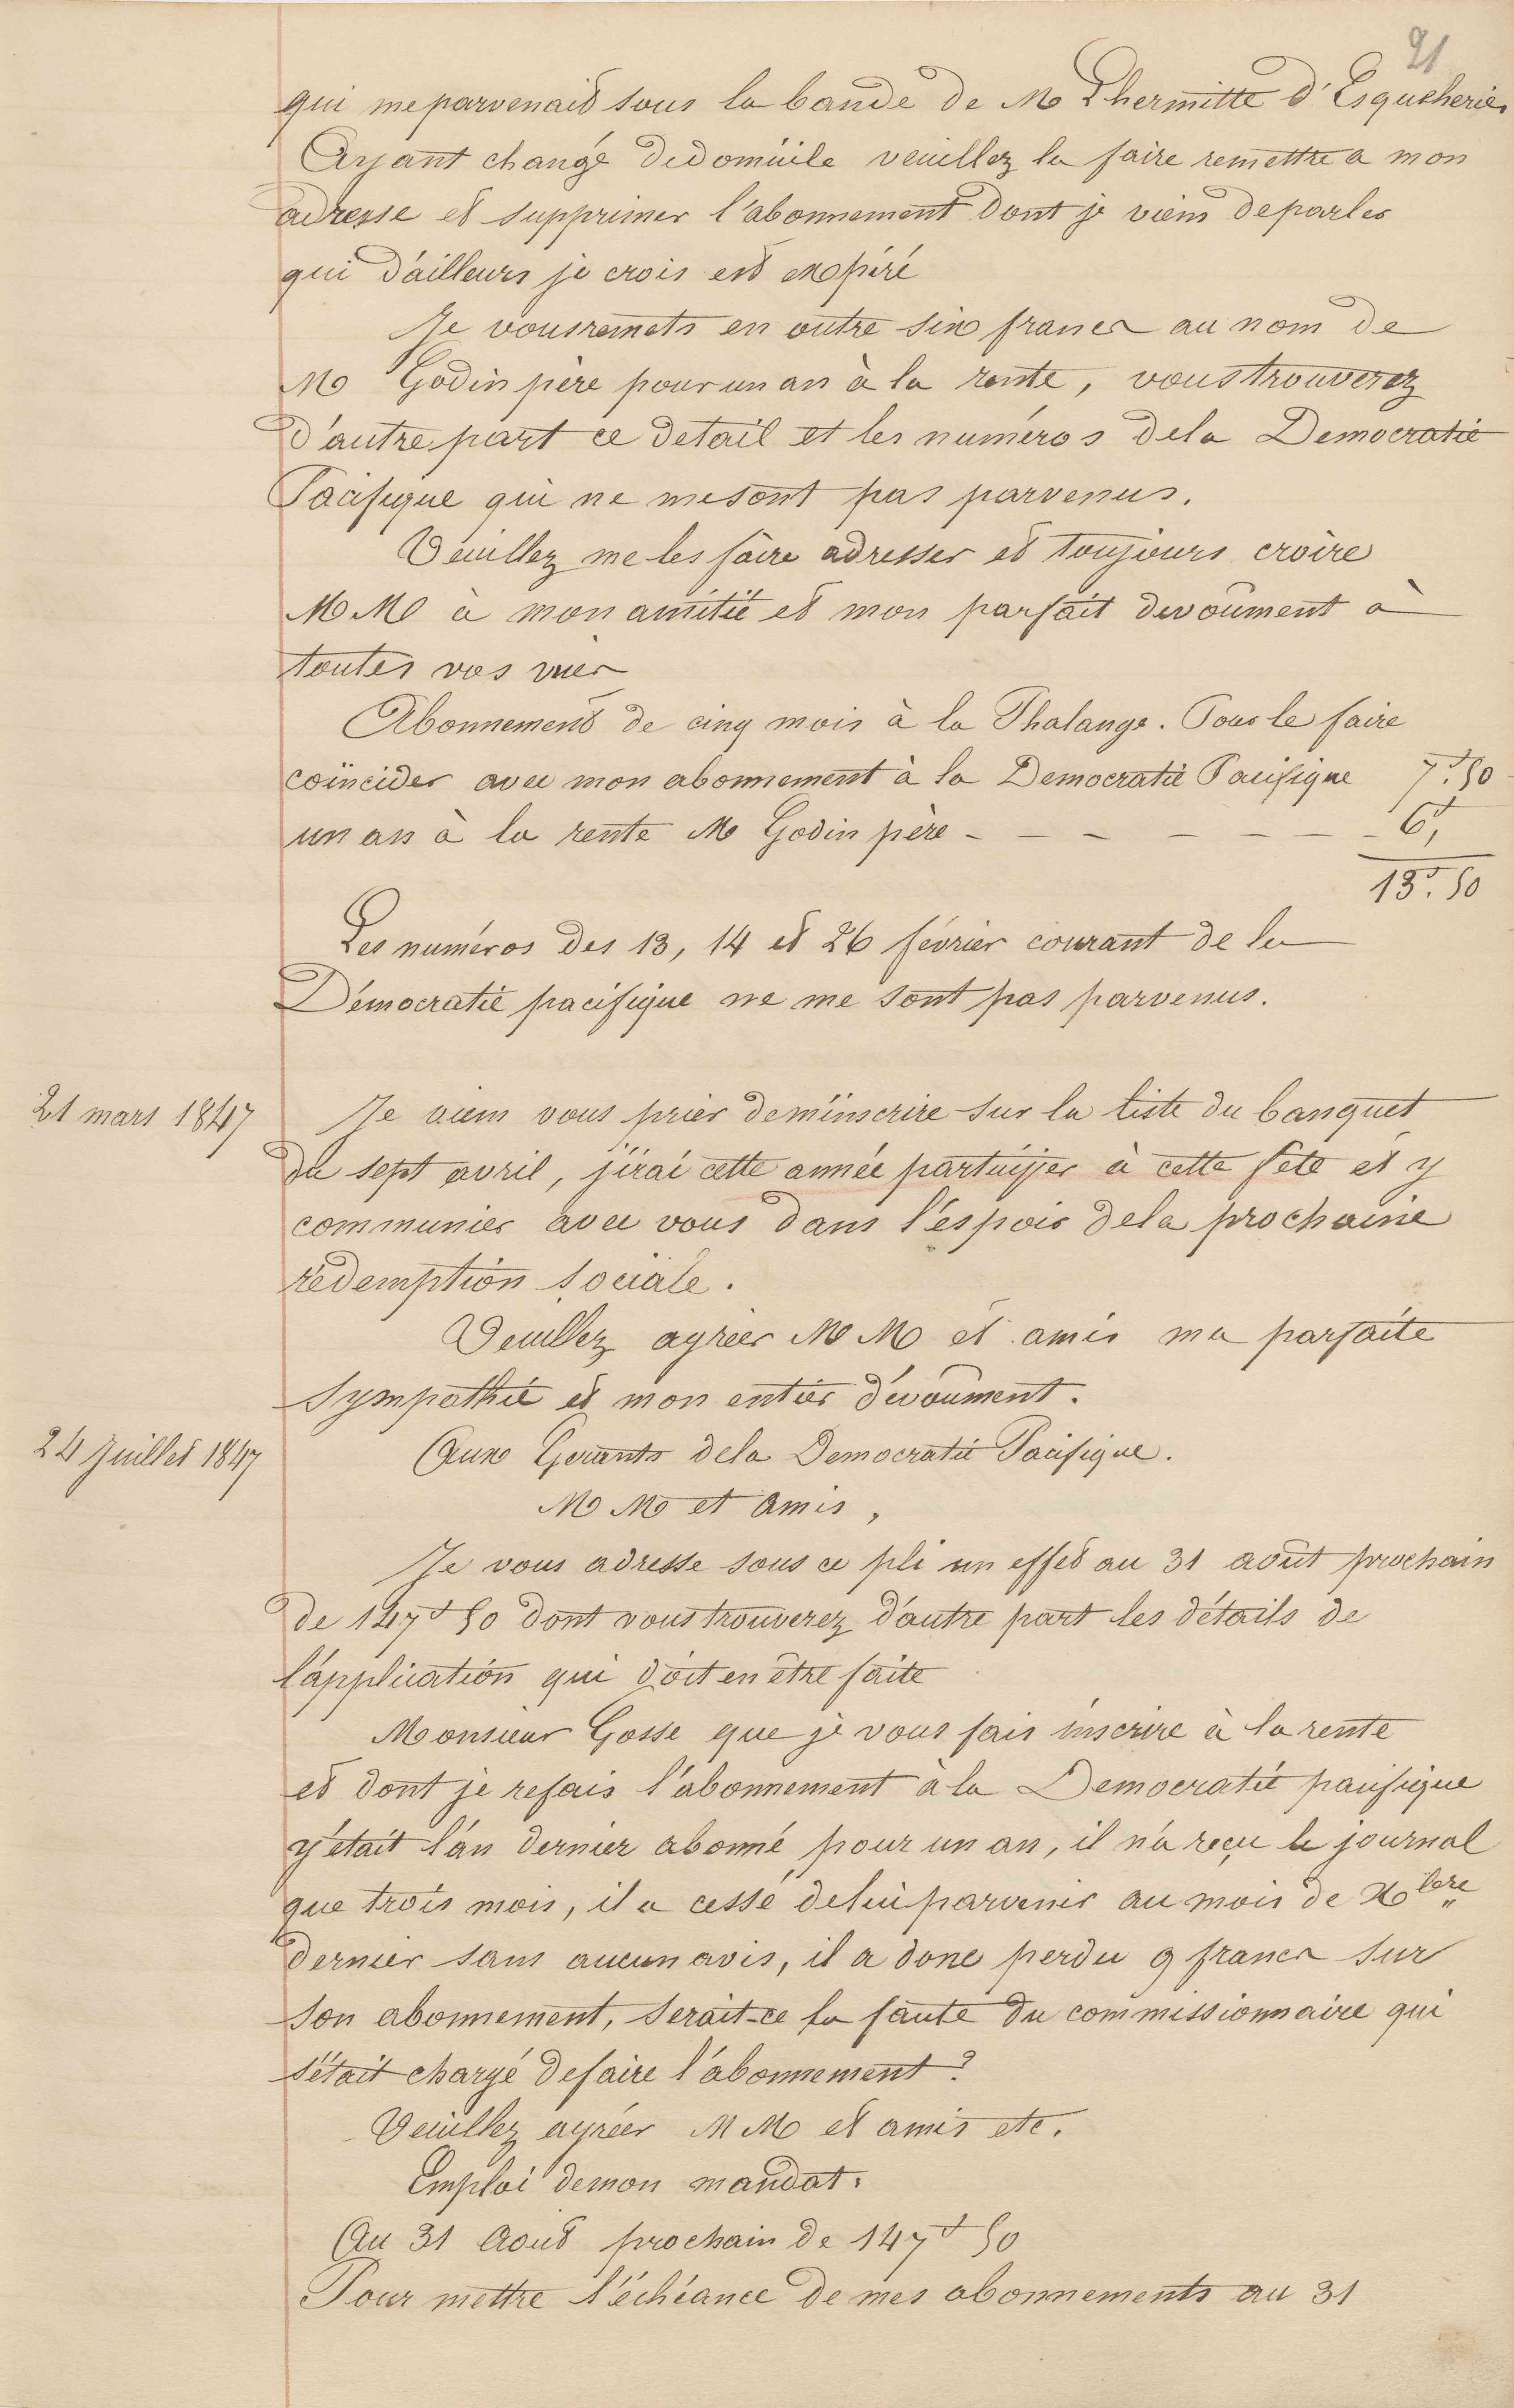 21
qui me parvenait sous la bande de M Lhermitte d'Esqueheries
Ayant changé de domicile veuillez la faire remettre a mon
adresse et supprimer l'abonnement dont je viens de parler
qui d'ailleurs je crois est expiré
Je vous remets en outre six francs au nom de
M Godin père pour un an à la rente, vous trouverez
d'autre part ce detail et les numéros de la Democratie
Pacifique qui ne me sont pas parvenus.
Veuillez me les faire adresser et toujours croire
M M à mon amitié et mon parfait devoûment à
toutes vos vues
Abonnement de cinq mois à la Phalange. Pour le faire
coïncider avec mon abonnement à la Democratie Pacifique 7f.50
un an à la rente M Godin père - - - - - - - 6f,
13f.50
Les numéros des 13, 14 et 26 février courant de la
Démocratie pacifique ne me sont pas parvenus.
21 mars 1847
Je viens vous prier de m'inscrire sur la liste du banquet
du sept avril, j'irai cette année participer à cette fête et y
communier avec vous dans l'espoir de la prochaine
rédemption sociale.
Veuillez agréer M M et amis ma parfaite
sympathie et mon entier dévoûment.
24 Juillet 1847
Aux Gerants de la Democratie Pacifique.
M M et Amis,
Je vous adresse sous ce pli un effet au 31 août prochain
de 147f 50 dont vous trouverez d'autre part les détails de
l'application qui doit en être faite
Monsieur Gosse que je vous fais inscrire à la rente
et dont je refais l'abonnement à la Democratie pacifique
y était l'an dernier abonné pour un an, il n'a reçu le journal
que trois mois, il a cessé de lui parvenir au mois de Xbre
dernier sans aucun avis, il a donc perdu 9 francs sur
son abonnement, serait-ce la faute du commissionnaire qui
s'était chargé de faire l'abonnement?
Veuillez agréer M M et amis etc.
Emploi de mon mandat.
Au 31 Août prochain de 147f 50
Pour mettre l'échéance de mes abonnements au 31